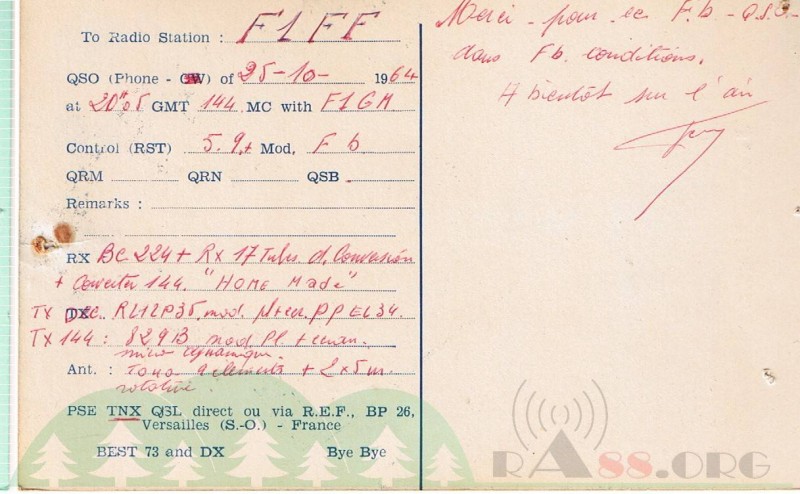 To Radio Station : F1FF
QSO (Phone - CW) of 25-10- 1964
at 20H05 GMT 144 MC with F1GM
Control (RST) 5.9.+ Mod. F b
QRM QRN QSB
Remarks :
RX BC 224 + Rx 17 Tubes d. Conversion
+ Converter 144. "HOME Made"
TX RL12P35 mod. PP EL34.
TX 144 : 829B mod Pl. + ecran.
micro dynamique.
Ant. : 9 elements + 2 x 5 m.
rotative
PSE TNX QSL direct ou via R.E.F., BP 26,
Versailles (S.-O.) - France
BEST 73 and DX Bye Bye
Merci - pour ce F.b - QSO -
dans Fb. conditions.
A bientôt sur l'air
RA88.ORG